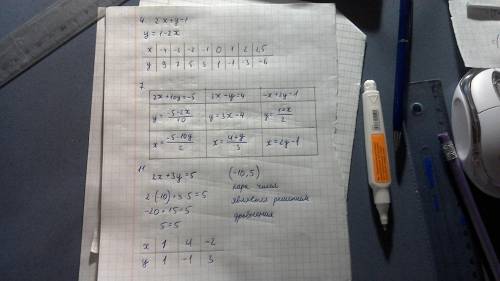 4. 2x+y=1
y=1-2x
x -4 -3 -2 -1 0 1 2 2,5
y 9 7 5 3 1 -1 -3 -4
7
2x+10y=-5 3x-y=4 -x+2y=1
y=(-5-2x)/10 y=3x-4 y=(1+x)/2
x=(-5-10y)/2 x=(4+y)/3 x=2y-1
11
2x+3y=5 (-10,5)
2·(-10)+3·5=5 пара чисел
-20+15=5 является решением
5=5 уравнения
x 1 4 -2
y 1 -1 3